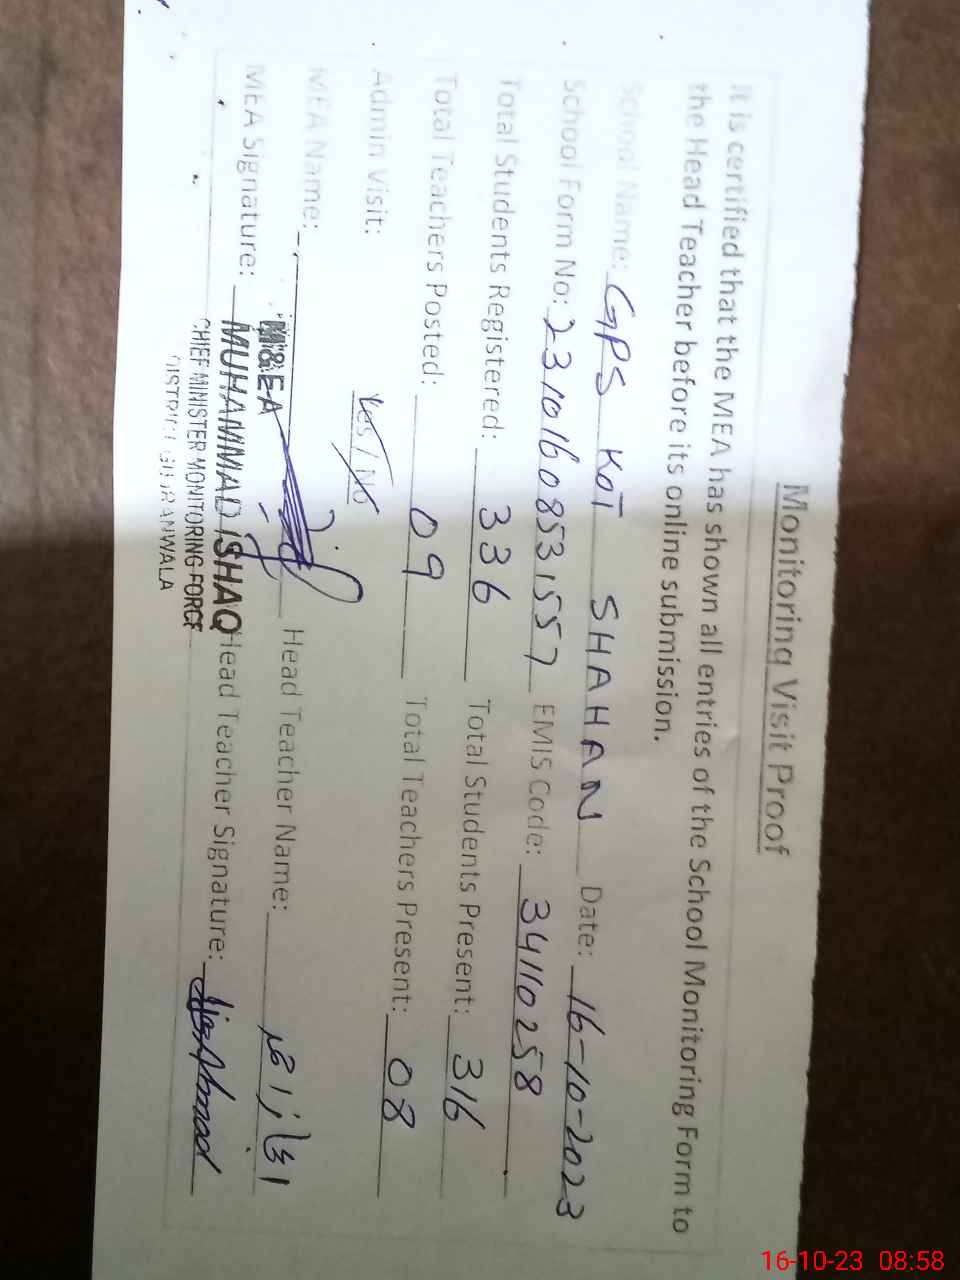 Monitoring Visit Proof
It is certified that the MEA has shown all entries of the School Monitoring Form to
the Head Teacher before its online submission.
School Name: GPS KOT SHAHAN Date: 16-10-2023
School Form No: 2310160853157 EMIS Code: 34110258
Total Students Registered: 336 Total Students Present: 316
Total Teachers Posted: 09 Total Teachers Present: 08
Admin Visit: Yes / No
MEA Name: Head Teacher Name: اعجاز احمد
MEA Signature: Head Teacher Signature:
M&EA
MUHAMMAD ISHAQ
CHIEF MINISTER MONITORING FORCE
DISTRICT GUJRANWALA
16-10-23 08:58